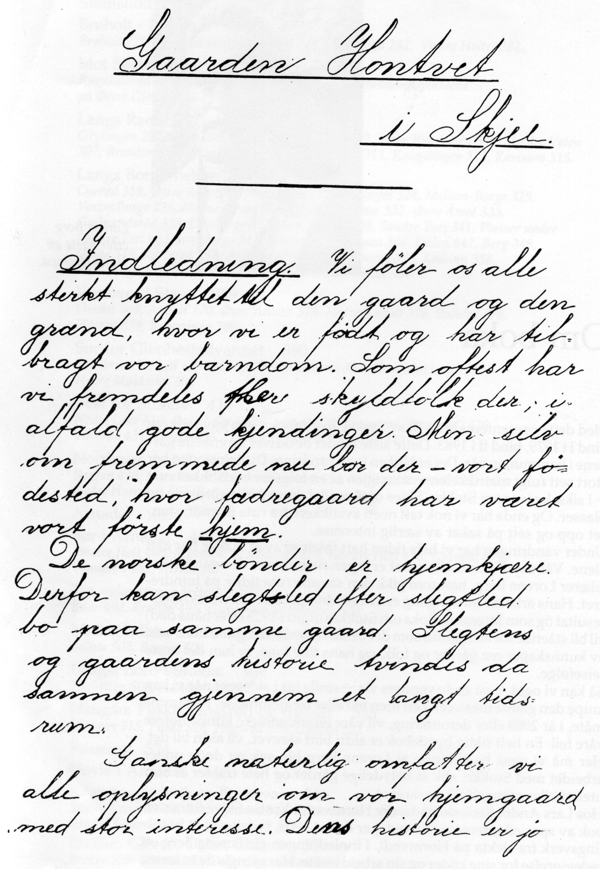 Gaarden Hontvet
i Skjee.
Indledning. Vi föler os alle
sterkt knyttet til den gaard og den
grænd, hvor vi er födt og har til-
bragt vor barndom. Som oftest har
vi fremdeles skyldfolk der; i-
alfald gode kjendinger. Men selv
om fremmede nu bor der – vort fö=
dested, hvor fædregaard har været
vort förste hjem.
De norske bönder er hjemkjære.
Derfor kan slegtsled efter slegtled
bo paa samme gaard. Slegtens
og gaardens historie tvindes da
sammen gjennem et langt tids-
rum.
Ganske naturlig omfatter vi
alle oplysninger om vor hjemgaard
med stor interesse. Dens historie er jo